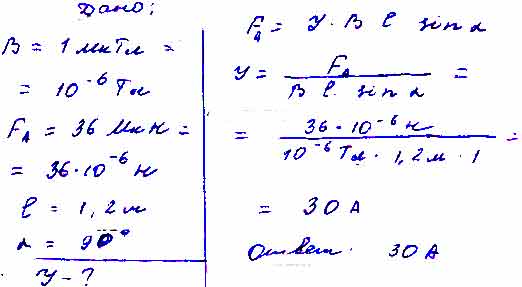 Дано:
B = 1 мкТл =
= 10⁻⁶ Тл
F_A = 36 Мкн =
= 36·10⁻⁶ н
l = 1,2 м
α = 90°
У - ?
F_A = У · B l sin α
У = F_A / B l · sin α =
= 36·10⁻⁶ н / 10⁻⁶ Тл · 1,2 м · 1 =
= 30 А
Ответ. 30 А